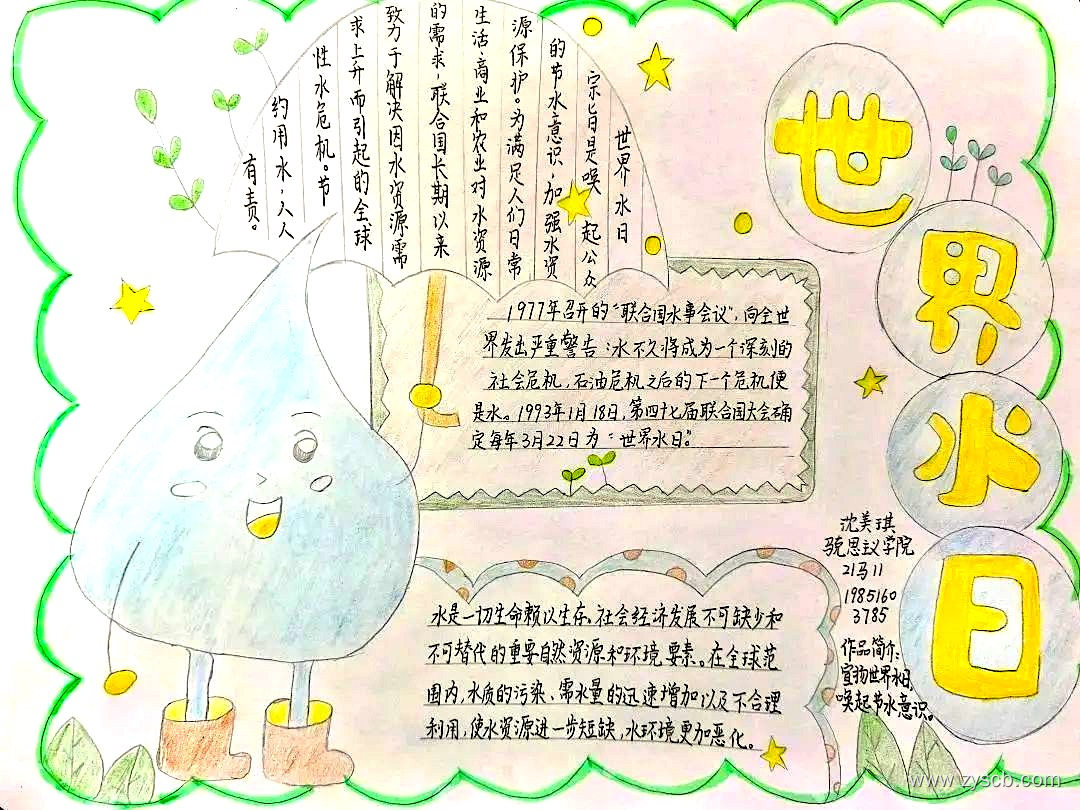 世界水日
世界水日
宗旨是唤起公众
的节水意识,加强水资
源保护。为满足人们日常
生活、商业和农业对水资源
的需求,联合国长期以来
致力于解决因水资源需
求上升而引起的全球
性水危机。节
约用水,人人
有责。
1977年召开的“联合国水事会议”,向全世
界发出严重警告:水不久将成为一个深刻的
社会危机,石油危机之后的下一个危机便
是水。1993年1月18日,第四十七届联合国大会确
定每年3月22日为“世界水日”。
水是一切生命赖以生存,社会经济发展不可缺少和
不可替代的重要自然资源和环境要素。在全球范
围内,水质的污染、需水量的迅速增加以及不合理
利用,使水资源进一步短缺,水环境更加恶化。
沈美琪
马克思主义学院
21马11
1985160
3785
作品简介:
宣扬世界水日,
唤起节水意识。
www.zyscb.com